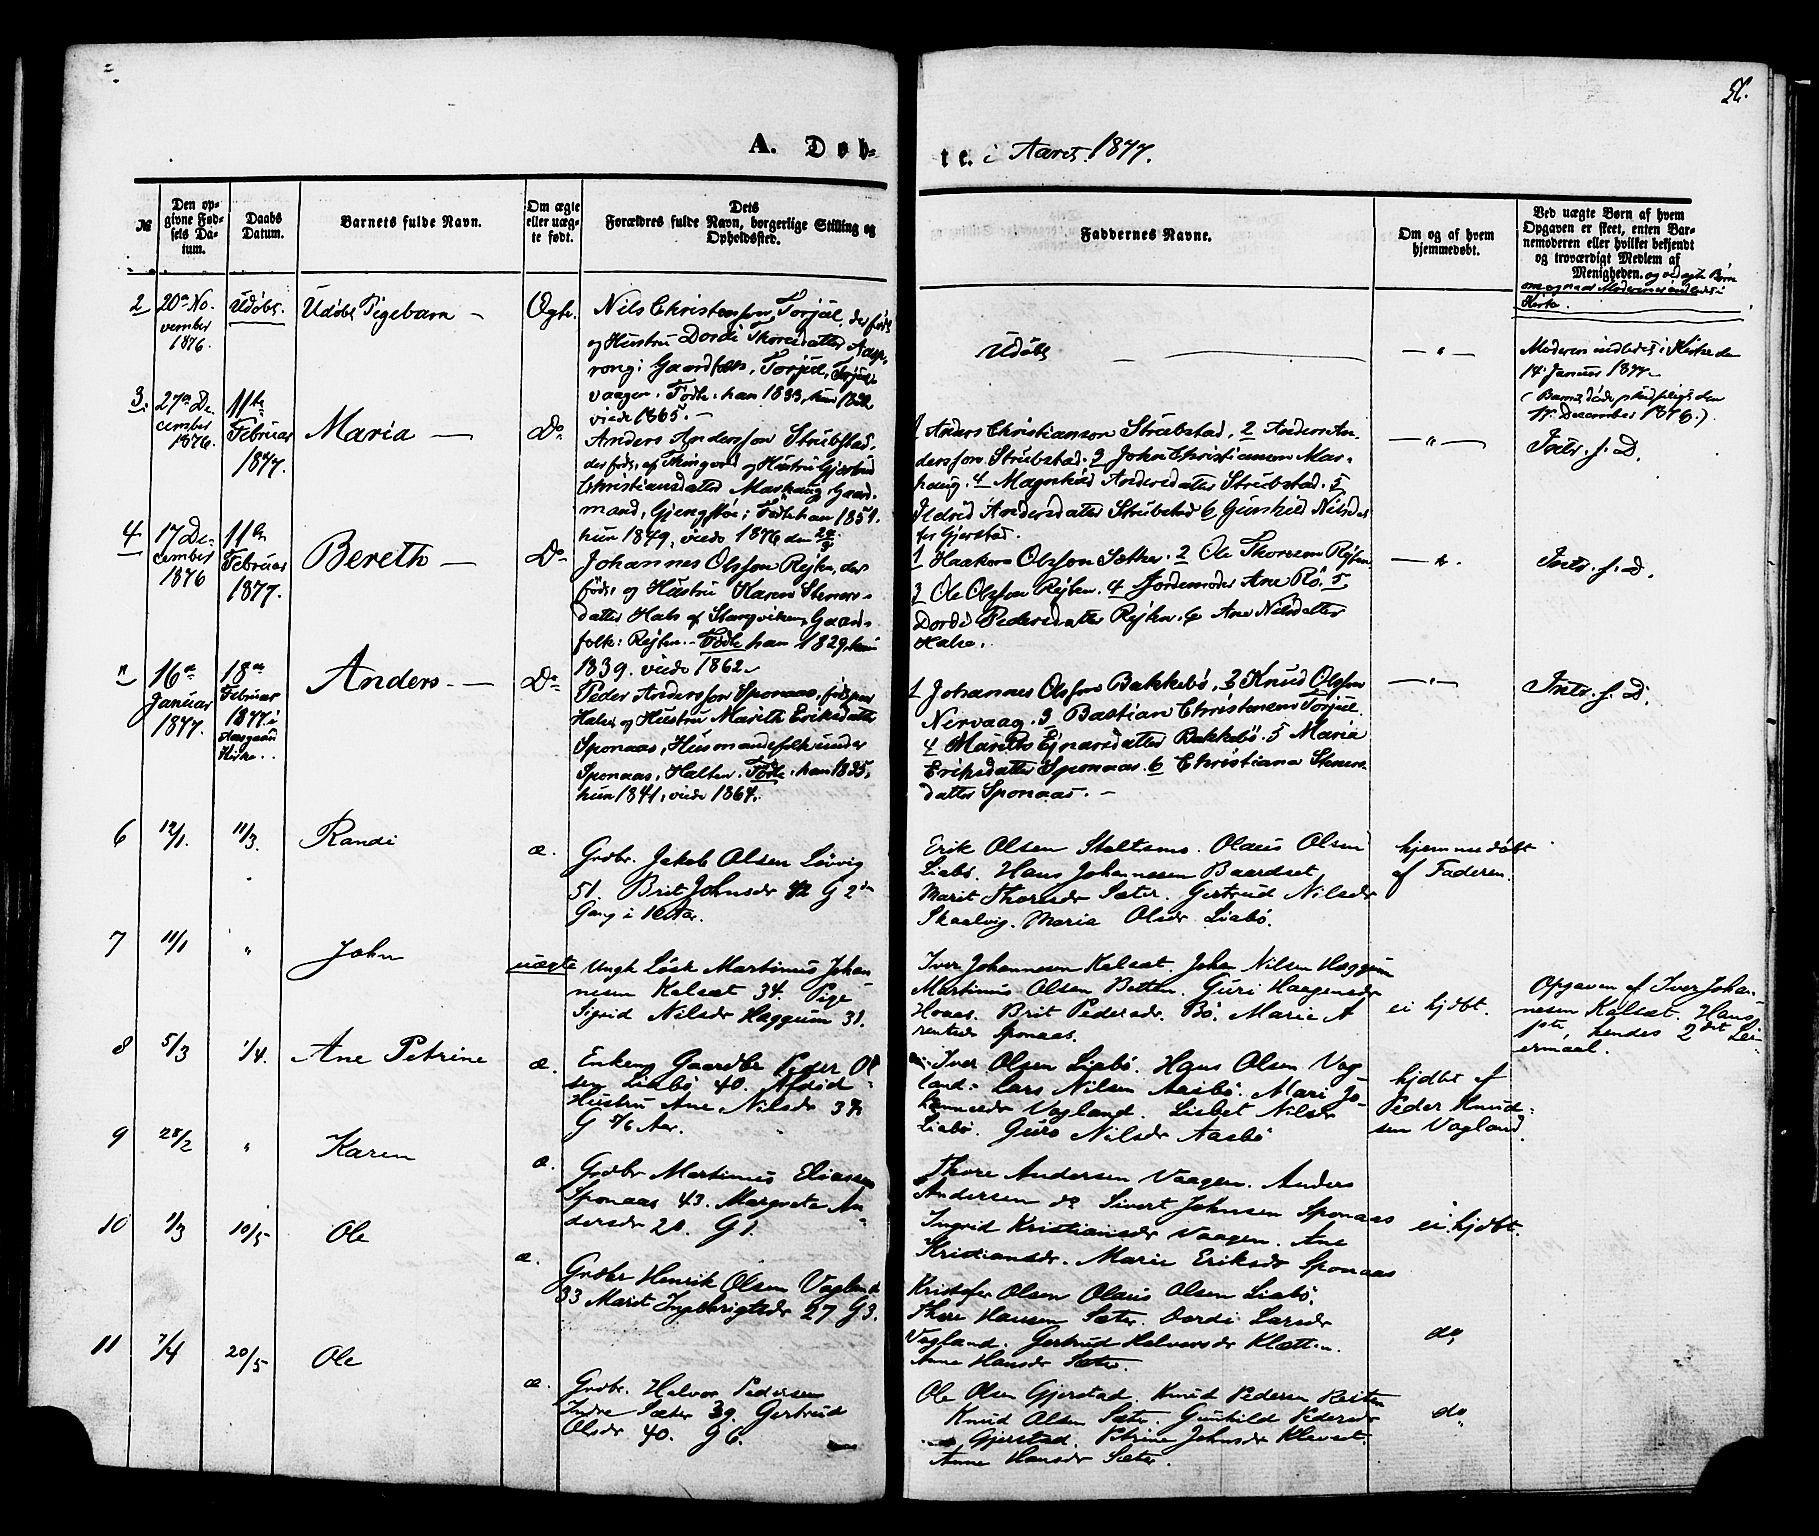 A. Døb-
te. i Aaret 1877.
№
Den op-
givne Fød-
sels Da-
tum.
Daabs
Datum.
Barnets fulde Navn.
Om ægte
eller uæg-
te født.
Dets
Forældres fulde Navn, borgerlige Stilling og
Opholdssted.
Faddernes Navne.
Om og af hvem
hjemmedøbt.
Ved uægte Børn af hvem
Opgaven er skeet, enten Bar-
nemoderen eller hvilket bekjendt
og troværdigt Medlem af
Menigheden. og ved ægte Børn
om og naar Moderen er indledet i
Kirke.
2
20de No-
vember
1876.
Udøbt.
Udøbt Pigebarn —
Ægte.
Nils Christensen Torjul, der føds.
og Hustru Dordi Thoresdatter Aasp-
rong; Gaardfolk, Torjul, Torjul-
vaagen. Fødte: han 1833, hun 1832
viede 1865. —
Udøbt
— " —
Moderen indledet i Kirke den
14 Januar 1877.
(Barnet døde pludseligt den
17. December 1876.)
3.
27de De-
cember
1876.
11te
Februar
1877.
Maria —
Do
Anders Andersson Strubstad,
der føds. af Thingvold og Hustru Gjertrud
Christiansdatter Markaug, Gaard-
mand, Gjengstøe; Fødte: han 1851.
hun 1849, viede 1876 den
1 Anders Christianson Strubstad. 2 Anders An-
dersson Strubstad. 3 John Christianson Mar-
haug. 4 Magnhild Andersdatter Strubstad. 5
Ildrid Andersdatter Strubstad 6 Gunhild Nilsdat-
ter Gjerstad.
— " —
Intr. s. D.
4
17 De-
cember
1876
11te
Februar
1877.
Bereth —
Do
Johannes Olsson Rejten, der
føds. og Hustru Karen Steners-
datter Hals af Stangviken, Gaard-
folk: Rejten. — Fødte han 1829, hun
1839. viede 1862.
1 Haakon Olsson Sæther. 2 Ole Thoresen Rejten
3 Ole Olsson Rejten. 4 Jordemoder Ane Rø. 5
Dordi Pedersdatter Rejten. 6 Ane Nilsdatter
Halse.
— " —
Intr. s. D.
"
16de
Januar
1877.
18de
Februar
1877 i
Aasgaard
Kirke.
Anders —
Do
Peder Andersson Sponaas, føds. paa
Halse og Hustru Mareth Eriksdatter
Sponaas, Husmandsfolk under
Sponaas, Halten. Fødte: han 1835,
hun 1841, viede 1864.
1 Johannes Olsson Bakkebø, 2 Knud Olsson
Nervaag. 3 Bastian Christensen Torjul.
4 Mareth Ejnarsdatter Bakkebø. 5 Maria
Eriksdatter Sponaas. 6 Christiana Steners-
datter Sponaas. —
— " —
Intr. s. D.
6
12/1.
11/3.
Randi
æ.
Grdbr. Jakob Olsen Løvvig
51. Brit Johnsdr 42 G 2den
Gang i 16 Aar.
Erik Olsen Olaus Olsen
Liabø. Hans Johannesen Baardset.
Marit Thoresdr Sæter. Gertrud Nilsdr
Skaalvig. Maria Olsdr. Liabø.
hjemmedøbt
af Faderen.
7
11/1
"
John
uægte
Ungk Løsk Martinus Johan-
nesen Kalsæt 34. Pige
Sigrid Nilsdr Haggum 31.
Iver Johannesen Kalsæt. Johan Nilsen Haggum
Martinus Olsen Botten. Guri Haagensdr
Hoaas. Brit Pedersdr. Bø. Marie A
rentsdr Sponaas.
ei hjdbt.
Opgaven af Iver Johan-
nesen Kalsæt. Hans
1ste, hendes 2det Lei-
ermaal.
8
5/3
1/4.
Ane Petrine
æ.
Enkem. Gaardbr Peder Ol
sen Liabø 40. Afdød
Hustru Ane Nilsdr 37
G 7/6 Aar.
Iver Olsen Liabø. Hans Olsen Vag
land. Lars Nilsen Aasbø. Mari Jo-
hannesdr Vagland. Lisbet Nilsdr
Liabø. Guro Nilsdr Aasbø
hjdbt af
Peder Knud-
sen Vagland.
9
28/2
"
Karen
æ.
Grdbr Martinus Eliassen
Sponaas 43. Margrete An-
dersdr 20. G 1.
Thore Andersen Vaagen. Anders
Andersen do Sivert Johnsen Sponaas
Ingrid Kristiansdr Vaagen. Ane
Kristiansdr. Marie Eriksdr Sponaas
ei hjdbt.
10
1/3
10/5
Ole
æ.
Grdbr Henrik Olsen Vagland
33 Marit Ingebrigtsdr 27 G 3.
Kristofer Olsen Olaus Olsen Liabø.
Thore Hansen Sæter. Dordi Larsdr
Vagland. Gertrud Halvorsdr Kletten.
Anne Hansdr Sæter.
do
11
7/4
20/5
Ole
æ.
Grdbr. Halvor Pedersen
Indre Sæter 39. Gertrud
Olsdr 40. G 6.
Ole Olsen Gjerstad. Knud Pedersen Reiten
Knud Olsen Sæter. Gunhild Pedersdr
Gjerstad. Petrine Johnsdr Klevset.
Anne Hansdr Sæter.
do